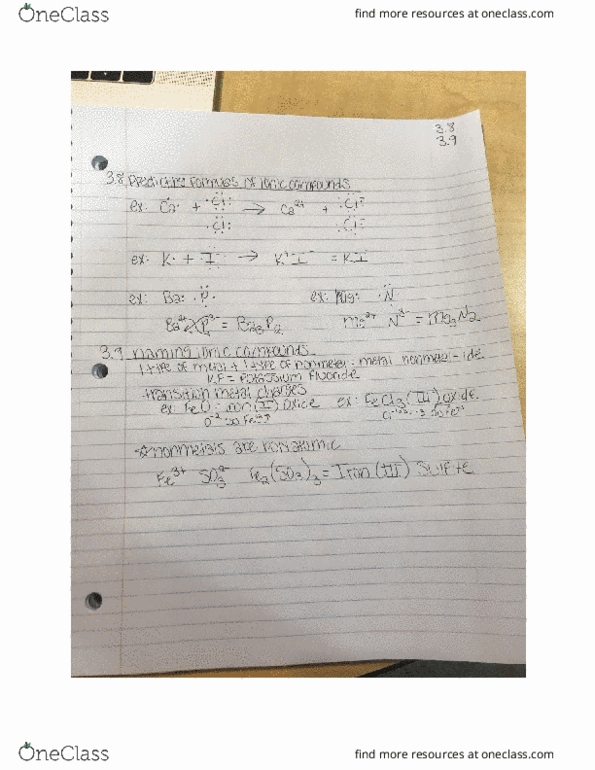 OneClass
find more resources at oneclass.com
3.8
3.9
3.8 Predicting formulas of ionic compounds
ex: Ca: + :Cl: → Ca²⁺ + :Cl:⁻
:Cl: :Cl:⁻
ex: K· + I → K⁺ I⁻ = KI
ex: Ba: ·P· ex: Mg: ·N
Ba²⁺ P³⁻ = Ba₃P₂ Mg²⁺ N³⁻ = Mg₃N₂
3.9 naming ionic compounds
1 type of metal + 1 type of nonmetal: metal nonmetal - ide
KF = Potassium Fluoride
transition metal charges
ex: FeO: iron (II) Oxide ex: FeCl3 (III) oxide
O⁻² so Fe⁺² so Fe³⁺
☆nonmetals are Polyatomic
Fe³⁺ SO₃²⁻ Fe₂(SO₃)₃ = Iron (III)
OneClass
find more resources at oneclass.com